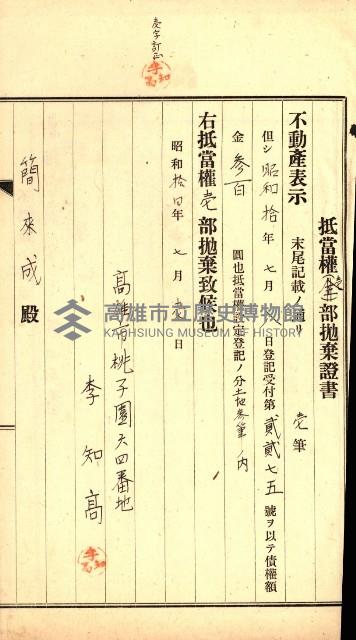 壱字訂正
抵當權壱部拋棄證書
不動產表示 末尾記載ノ通リ 壱筆
但シ昭和拾年七月 日登記受付第貳貳七五號ヲ以テ債權額
金參百 圓也抵當權設定登記ノ分土地參筆ノ内
右抵當權壱部拋棄致候也
昭和拾四年七月 日
高雄市桃子園六四番地
李知高
簡來成殿
高雄市立歷史博物館
KAOHSIUNG MUSEUM OF HISTORY